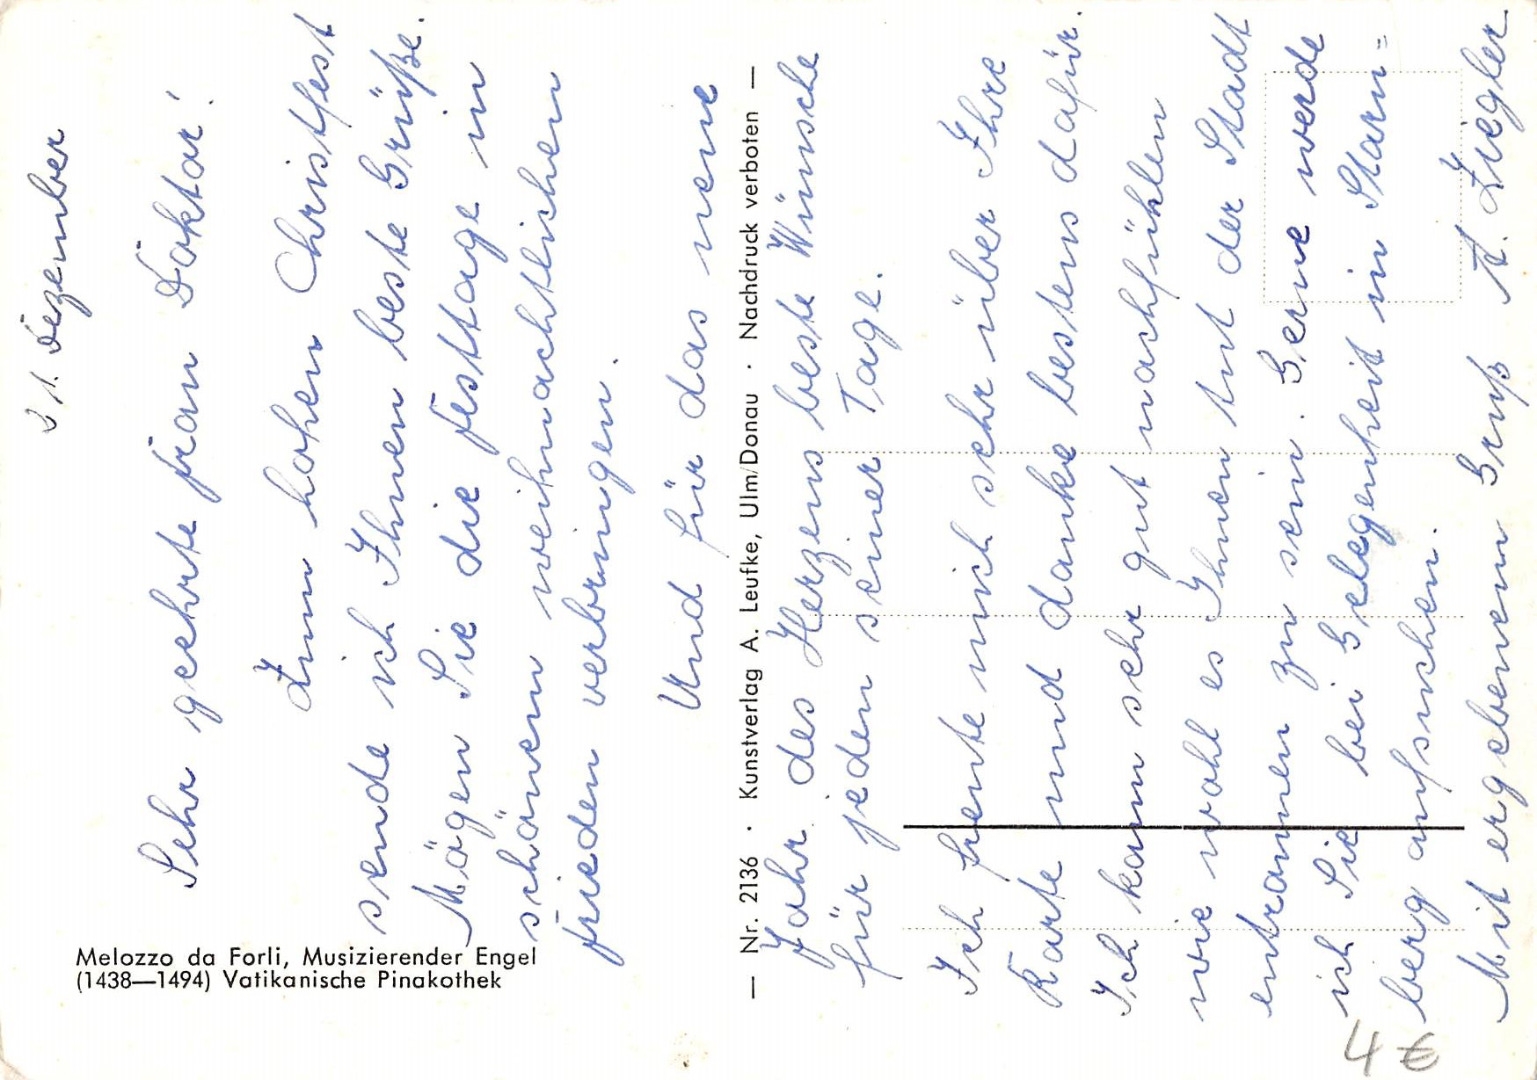 21. Dezember
Sehr geehrte Frau Doktor!
Zum hohen Christfest
sende ich Ihnen beste Grüße.
Mögen Sie die Festtage in
schönem weihnachtlichen
Frieden verbringen.
Und für das neue
Jahr des Herzens beste Wünsche
für jeden seiner Tage.
Ich freute mich sehr über Ihre
Karte und danke bestens dafür.
Ich kann sehr gut nachfühlen
wie wohl es Ihnen tut der Stadt
entrannen zu sein. Gerne werde
ich Sie bei Gelegenheit in Starn=
berg aufsuchen.
Mit ergebenem Gruß A. Ziegler.
Melozzo da Forli, Musizierender Engel
(1438—1494) Vatikanische Pinakothek
— Nr. 2136 · Kunstverlag A. Leufke, Ulm/Donau · Nachdruck verboten —
4 €